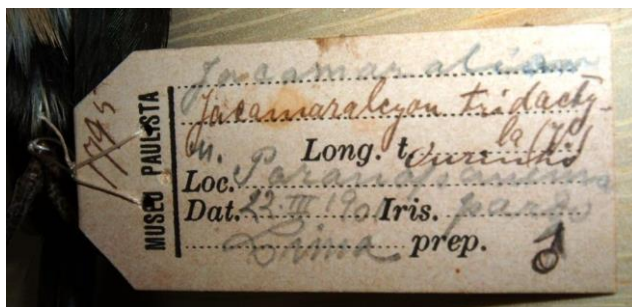 1795
MUSEU PAULISTA
Jacamaralcion
Jacamaralcyon tridacty-
la (70)
M. Long. t. Ourinho
Loc. Paranapanema
Dat. 22 III 190 Iris. pardo
Lima prep. ♂